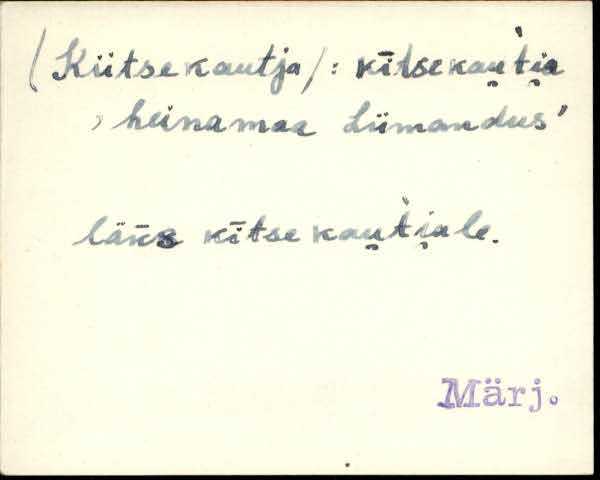 (Kiitsekautja): kītsekau̯t́i̯a
, heinamaa Liimandus'
läks kītsekau̯t́i̯ale.
Märj.